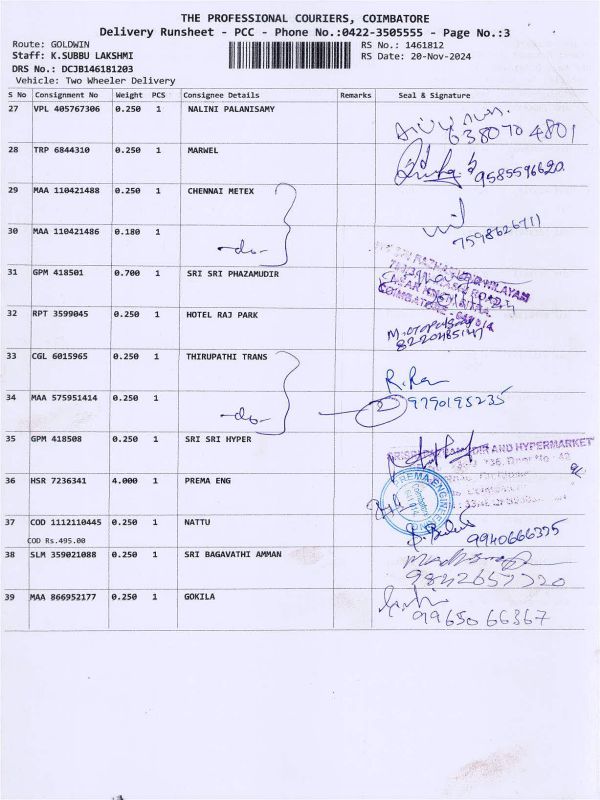 THE PROFESSIONAL COURIERS, COIMBATORE
Delivery Runsheet - PCC - Phone No.:0422-3505555 - Page No.:3
Route: GOLDWIN RS No.: 1461812
Staff: K.SUBBU LAKSHMI RS Date: 20-Nov-2024
DRS No.: DCJB146181203
Vehicle: Two Wheeler Delivery
S No Consignment No Weight PCS Consignee Details Remarks Seal & Signature
27 VPL 405767306 0.250 1 NALINI PALANISAMY
6380704801
28 TRP 6844310 0.250 1 MARWEL
9585596620
29 MAA 110421488 0.250 1 CHENNAI METEX
30 MAA 110421486 0.180 1
-do- 7598626711
31 GPM 418501 0.700 1 SRI SRI PHAZAMUDIR
NILAYAM
COIMBATORE
32 RPT 3599045 0.250 1 HOTEL RAJ PARK
33 CGL 6015965 0.250 1 THIRUPATHI TRANS
R.Ra
34 MAA 575951414 0.250 1
-do- 2 9790195235
35 GPM 418508 0.250 1 SRI SRI HYPER
AND HYPERMARKET
36 HSR 7236341 4.000 1 PREMA ENG
PREMA ENGINEERING
37 COD 1112110445 0.250 1 NATTU
COD Rs.495.00
9940666335
38 SLM 359021088 0.250 1 SRI BAGAVATHI AMMAN
9842657220
39 MAA 866952177 0.250 1 GOKILA
9965066367